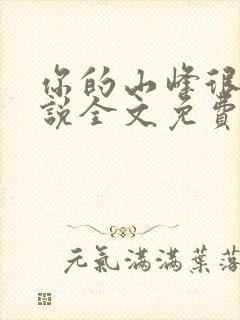 你的小峰很
說全文免費
元氣滿滿葉落